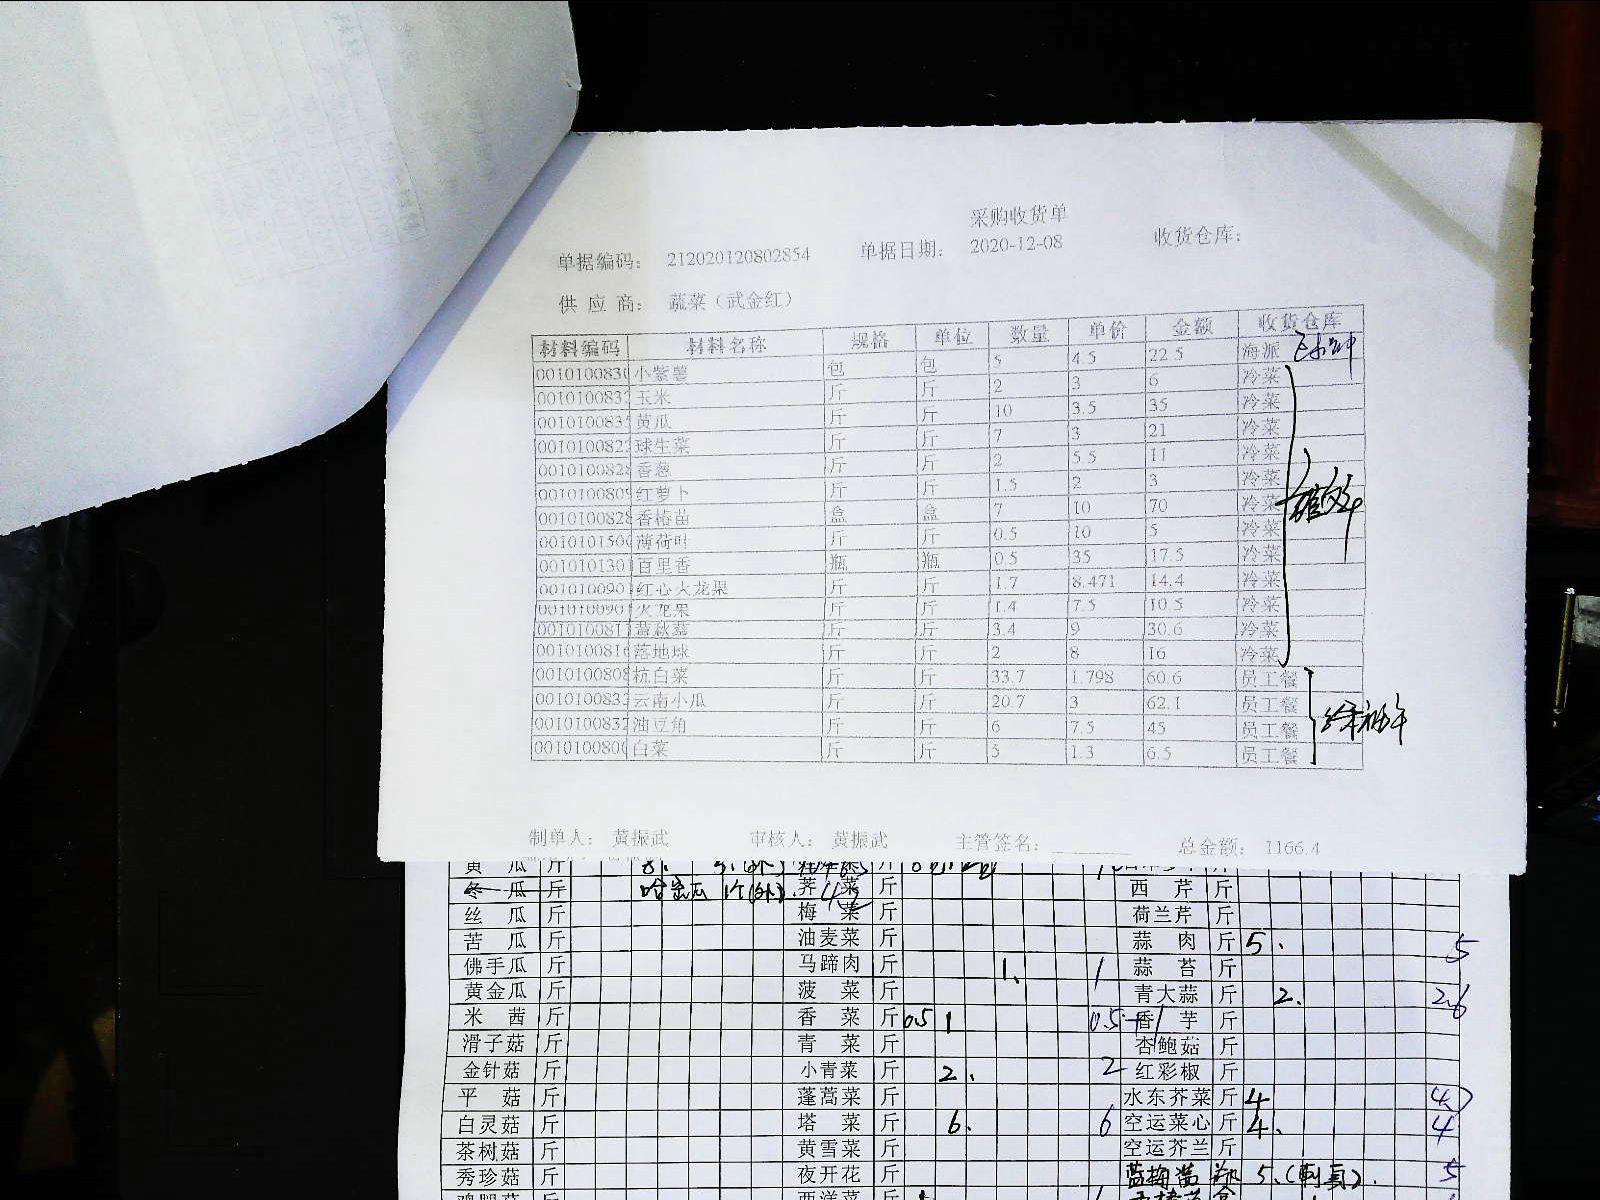 采购收货单
单据编码： 212020120802854 单据日期： 2020-12-08 收货仓库：
供 应 商： 蔬菜（武金红）
材料编码 材料名称 规格 单位 数量 单价 金额 收货仓库
001010083 小紫薯 包 包 5 4.5 22.5 海派
001010083 玉米 斤 斤 2 3 6 冷菜
001010083 黄瓜 斤 斤 10 3.5 35 冷菜
001010082 球生菜 斤 斤 7 3 21 冷菜
001010082 香葱 斤 斤 2 5.5 11 冷菜
001010080 红萝卜 斤 斤 1.5 2 3 冷菜
001010082 香椿苗 盒 盒 7 10 70 冷菜
001010150 薄荷叶 斤 斤 0.5 10 5 冷菜
001010130 百里香 瓶 瓶 0.5 35 17.5 冷菜
001010090 红心火龙果 斤 斤 1.7 8.471 14.4 冷菜
001010090 火龙果 斤 斤 1.4 7.5 10.5 冷菜
001010081 斤 斤 3.4 9 30.6 冷菜
001010081 落地球 斤 斤 2 8 16 冷菜
001010080 杭白菜 斤 斤 33.7 1.798 60.6 员工餐
001010083 云南小瓜 斤 斤 20.7 3 62.1 员工餐
001010083 油豆角 斤 斤 6 7.5 45 员工餐
001010080 白菜 斤 斤 5 1.3 6.5 员工餐
制单人： 黄振武 审核人： 黄振武 主管签名： 总金额： 1166.4
黄 瓜 斤 8. 斤
冬 瓜 斤 哈密瓜 1个(外). 荠 菜 斤 西 芹 斤
丝 瓜 斤 梅 菜 斤 荷兰芹 斤
苦 瓜 斤 油麦菜 斤 蒜 肉 斤 5. 5
佛手瓜 斤 马蹄肉 斤 1. 1 蒜 苔 斤
黄金瓜 斤 菠 菜 斤 青大蒜 斤 2. 2.6
米 茜 斤 香 菜 斤 0.5 1 0.5 香 芋 斤
滑子菇 斤 青 菜 斤 杏鲍菇 斤
金针菇 斤 小青菜 斤 2. 2 红彩椒 斤
平 菇 斤 蓬蒿菜 斤 水东芥菜 斤 4
白灵菇 斤 塔 菜 斤 6. 6 空运菜心 斤 4. 4
茶树菇 斤 黄雪菜 斤 空运芥兰 斤
秀珍菇 斤 夜开花 斤 5. 5
鸡腿菇 斤 西洋菜 斤